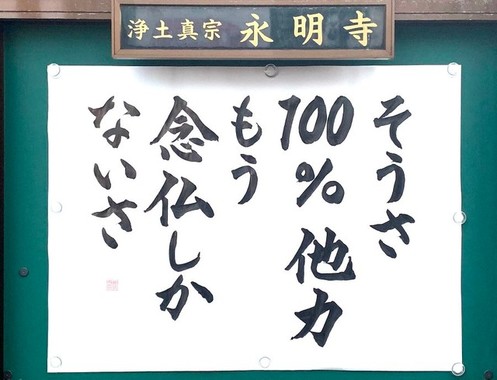 浄土真宗 永明寺
そうさ
100％他力
もう
念仏しか
ないさ